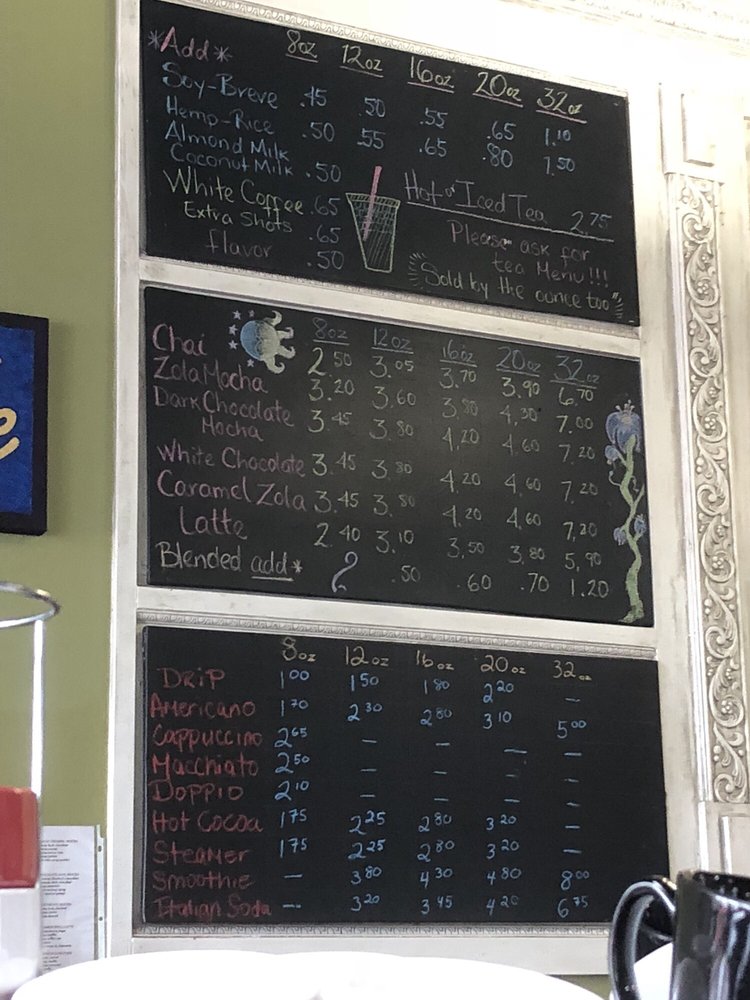 *Add* 8oz 12oz 16oz 20oz 32oz
Soy-Breve .45 .50 .55 .65 1.10
Hemp-Rice .50 .55 .65 .80 1.50
Almond Milk
Coconut Milk .50
White Coffee .65
Extra Shots .65
flavor .50
Hot or Iced Tea 2.75
Please ask for
tea Menu!!!
"Sold by the ounce too"
8oz 12oz 16oz 20oz 32oz
Chai 2.50 3.05 3.70 3.90 6.70
Zola Mocha 3.20 3.60 3.80 4.30 7.00
Dark Chocolate 3.45 3.80 4.20 4.60 7.20
Mocha
White Chocolate 3.45 3.80 4.20 4.60 7.20
Caramel Zola 3.45 3.80 4.20 4.60 7.20
Latte 2.40 3.10 3.50 3.80 5.90
Blended add* .50 .60 .70 1.20
8oz 12oz 16oz 20oz 32oz
Drip 1.00 1.50 1.80 2.20 –
Americano 1.70 2.30 2.80 3.10 5.00
Cappuccino 2.65 – – – –
Macchiato 2.50 – – – –
Doppio 2.10 – – – –
Hot Cocoa 1.75 2.25 2.80 3.20 –
Steamer 1.75 2.25 2.80 3.20 –
Smoothie – 3.80 4.30 4.80 8.00
Italian Soda -- 3.20 3.45 4.20 6.75